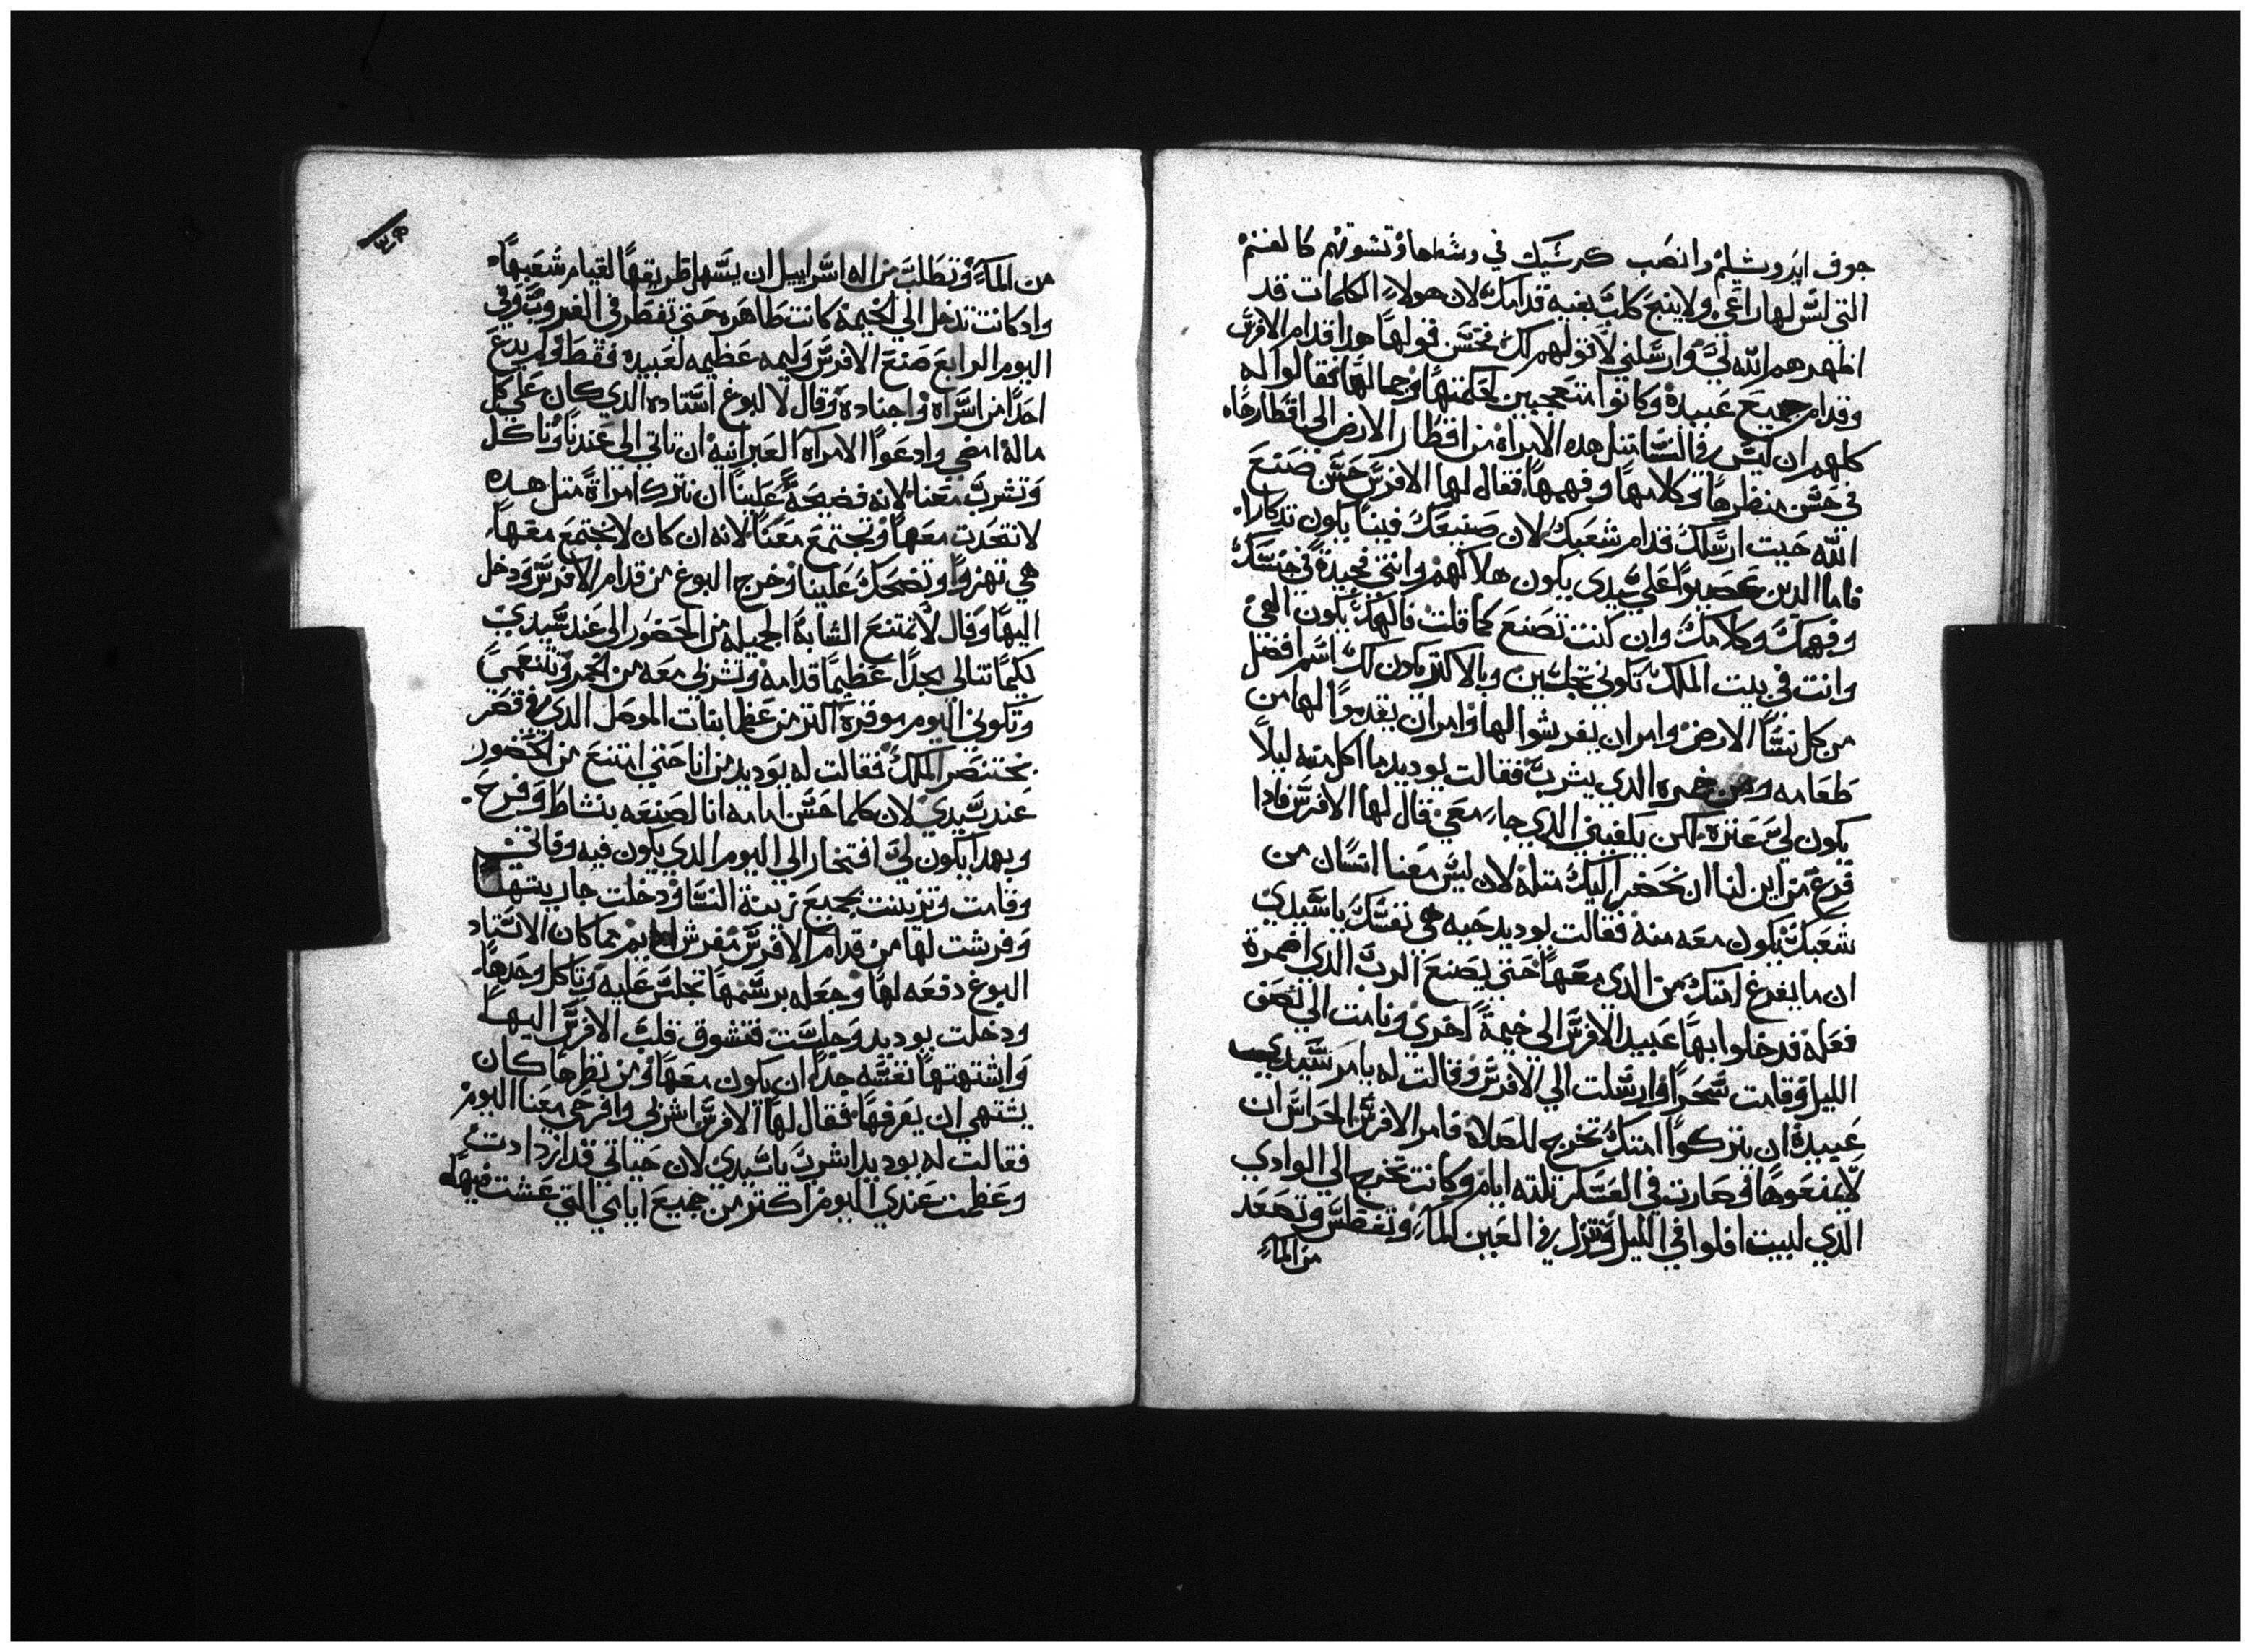 جوف ايروشليم وانصب كرسيك في وسطها وتسوقهم كالغنم
التي ليس لها راعي ولا ينبح كلب بفيه قدامك لان هولاء الكلمات قد
اظهرهم الله لي وارسلني لاقولهم لك فحسن قولها هدا قدام الافرس
وقدام جميع عبيده وكانوا متعجبين لحكمتها وجمالها فقالوا له
كلهم ان ليس في النسا متل هده الامراه من اقطار الارض الي اقطارها
في حسن منظرها وكلامها وفهمها فقال لها الافرس حسن صنع
الله حيت ارسلك قدام شعبك لان صنيعك فينا يكون تدكارا
فاما الدين عصيوا علي سيدي يكون هلاكهم وانتي مجيدة في جنسك
وفهمك وكلامك وان كنت تصنع كما قلت فالهك يكون الهي
وانت في بيت الملك تكوني تجلسين وبالاكتر يكون لك اسم افضل
من كل نسا الارض وامر ان يفرشوا لها وامر ان يقدموا لها من
طعامه ومن خمره الدي يشرب فقالت يوديد ما اكل منه ليلا
يكون لي عتره لكن يكفيني الدي جا معي قال لها الافرس فادا
فرغ من اين لنا ان نحضر اليك متله لان ليس معنا انسان من
شعبك يكون معه منه فقالت يوديد حيه هي نفسك يا سيدي
ان ما يفرغ امتك من الدي معها حتي يصنع الرب الدي اضمرة
فعله فدخلوا بها عبيد الافرس الي خيمة اخري ونامت الي نصف
الليل وقامت سحرا وارسلت الي الافرس وقالت له يامر سيدي
عبيدة ان يتركوا امتك تخرج للصلاة فامر الافرس الحراس ان
لا يمنعوها وصارت في العسكر تلته ايام وكانت تخرج الي الوادي
الدي لبيت افلوا في الليل وتنزل في العين الماء وتغطس وتصعد
من الماء
من الماء وتطلب من اله اسراييل ان يسهل طريقها لقيام شعبها
واد كانت تدخل الي الخيمة كانت طاهره حتي تفطر في الغروب وفي
اليوم الرابع صنع الافرس وليمه عظيمه لعبيده فقط ولم يدع
احدا من اسراه واجناده وقال لالبوغ استاده الدي كان علي كل
ماله امضي وادعوا الامراة العبرانية ان تاتي الي عندنا وتاكل
وتشرب معنا لانه فضيحة علينا ان نترك امراة متل هده
لا تتحدت معها وتجتمع معنا لانه ان كان لا نجتمع معها
هي تهزوا وتضحك علينا وخرج البوغ من قدام الافرس ودخل
اليها وقال لا تمتنع الشابة الجميله من الحضور الي عند سيدي
لكيما تنالي مجدا عظيما قدامه وتشربي معه من الخمر وتتنعمي
وتكوني اليوم موقرة اكتر من عظما بنات الموصل الدي في قصر
بختنصر الملك فقالت له يوديد من انا حتي امتنع من الحضور
عند سيدي لان كلما حسن امامه انا لصنعه بنشاط وفرح
وبهدا يكون لي افتخار الي اليوم الدي يكون فيه وفاتي
وقامت وتزينت بجميع زينة النسا ودخلت جاريتها
وفرشت لها من قدام الافرس مفرش مما كان الاستاد
البوغ دفعه لها وجعله برسمها تجلس عليه وتاكل وحدها
ودخلت يوديد وجلست فتشوق قلب الافرس اليها
واشتهتها نفسه جدا ان يكون معها ومن نظرها كان
يشتهي ان يعرفها فقال لها الافرس اشربي وافرحي معنا اليوم
فقالت له يوديد اشرب يا سيدي لان حياتي قد ازدادت
وعظمت عندي اليوم اكتر من جميع ايامي التي عشت فيها